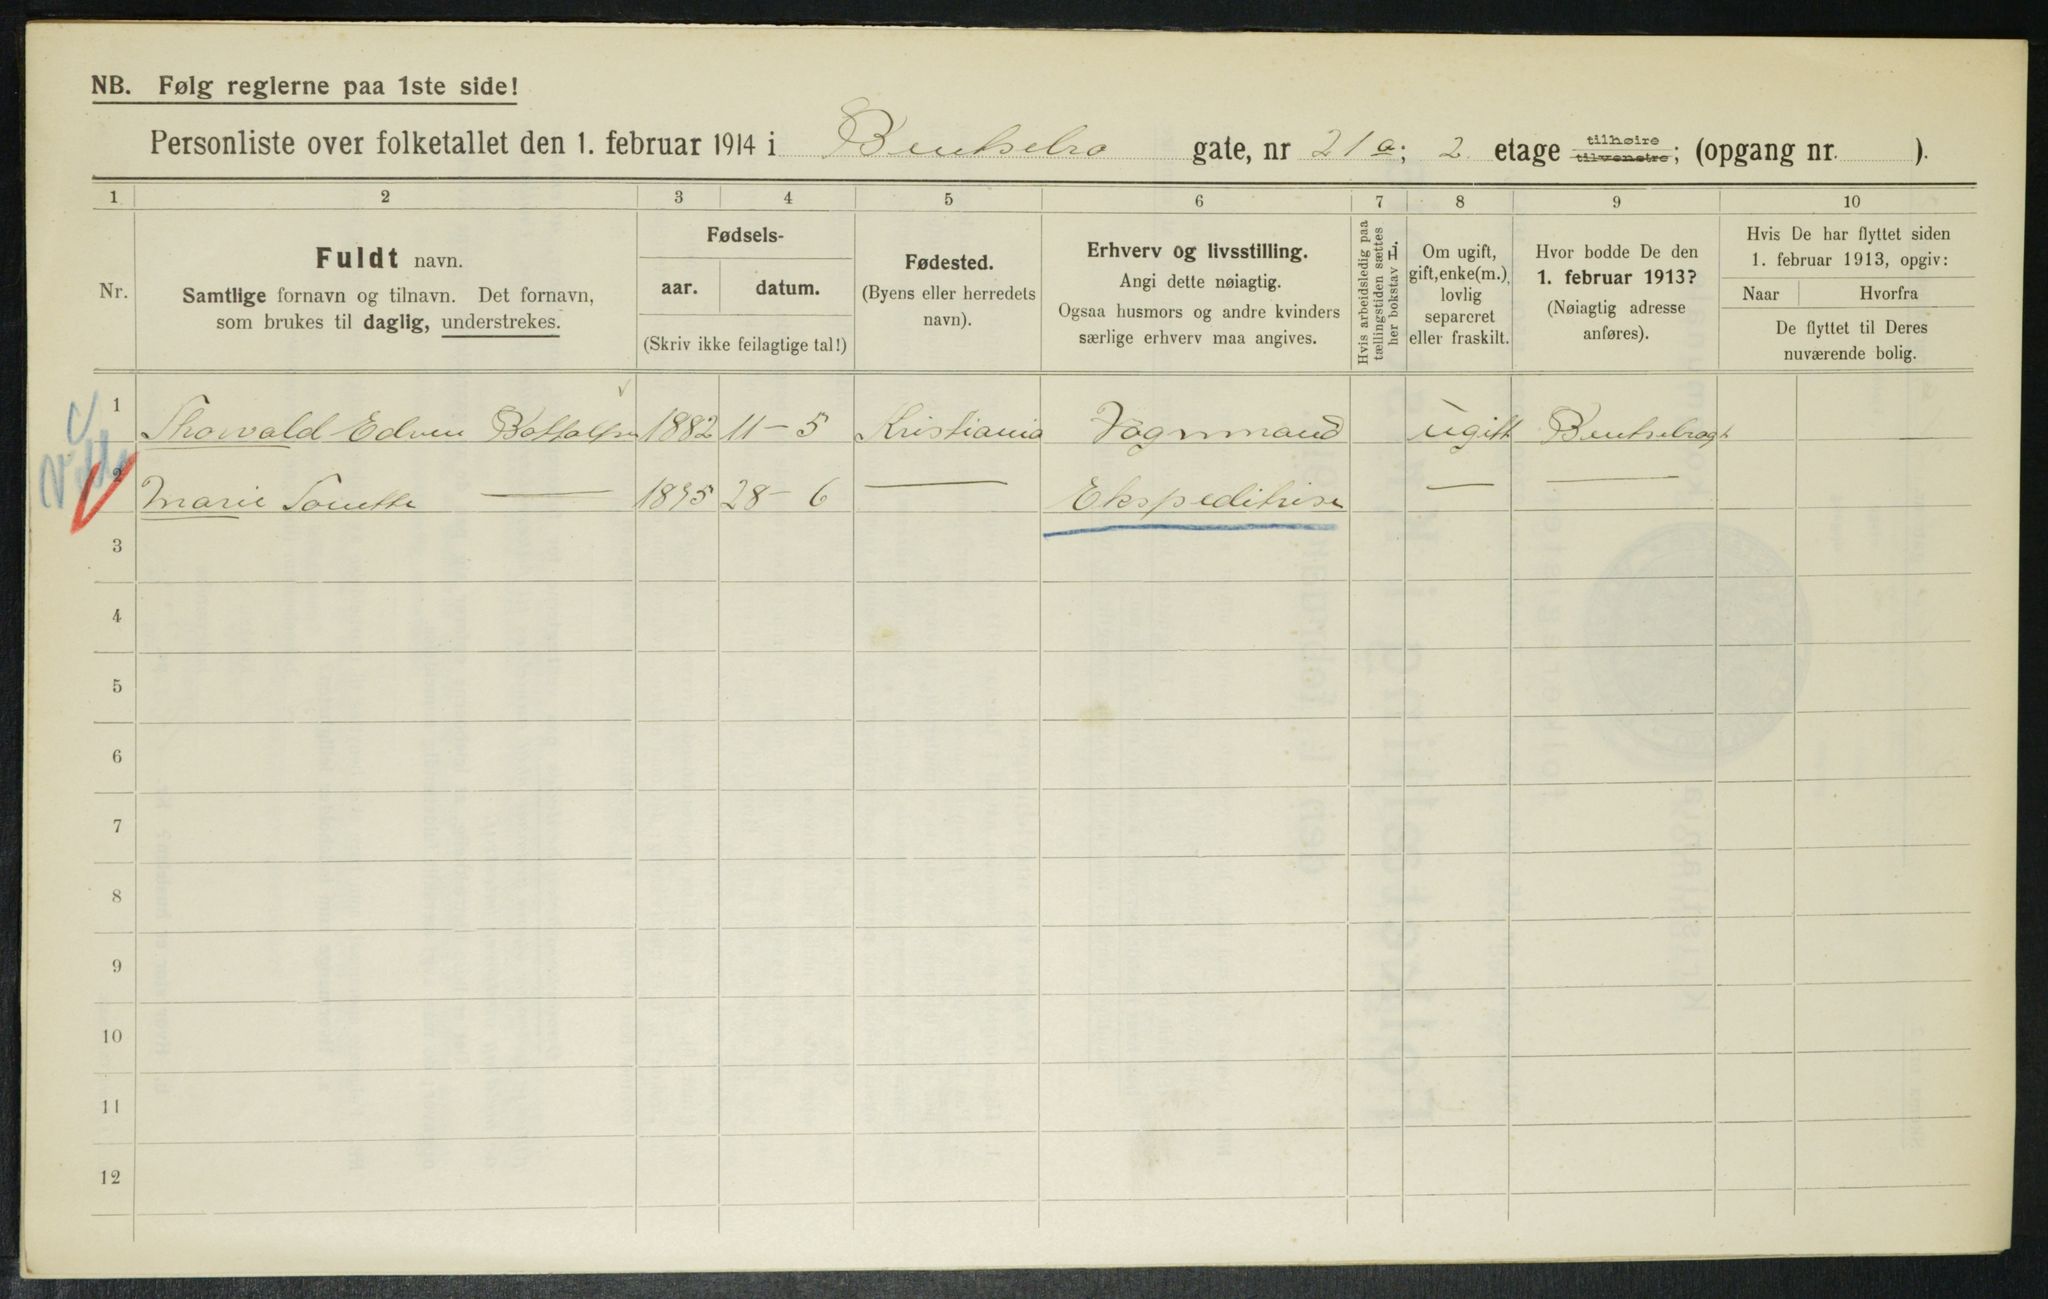 NB. Følg reglerne paa 1ste side!
Personliste over folketallet den 1. februar 1914 i Bentsebro gate, nr 21 a; 2 etage tilhøire tilvenstre; (opgang nr. ).
1 2 3 4 5 6 7 8 9 10
Nr.
Fuldt navn.
Samtlige fornavn og tilnavn. Det fornavn,
som brukes til daglig, understrekes.
Fødsels-
aar. datum.
(Skriv ikke feilagtige tal!)
Fødested.
(Byens eller herredets
navn).
Erhverv og livsstilling.
Angi dette nøiagtig.
Ogsaa husmors og andre kvinders
særlige erhverv maa angives.
Hvis arbeidsledig paa
tællingstiden sættes
her bokstav L.
Om ugift,
gift, enke(m.),
lovlig
separeret
eller fraskilt.
Hvor bodde De den
1. februar 1913?
(Nøiagtig adresse
anføres).
Hvis De har flyttet siden
1. februar 1913, opgiv:
Naar Hvorfra
De flyttet til Deres
nuværende bolig.
1 Thorvald Edvin Botfolfsen 1882 11-5 Kristiania Vognmand ugift Bentsebrogt
2 Marie Sonette — 1895 28-6 — Ekspeditrise — —
3
4
5
6
7
8
9
10
11
12